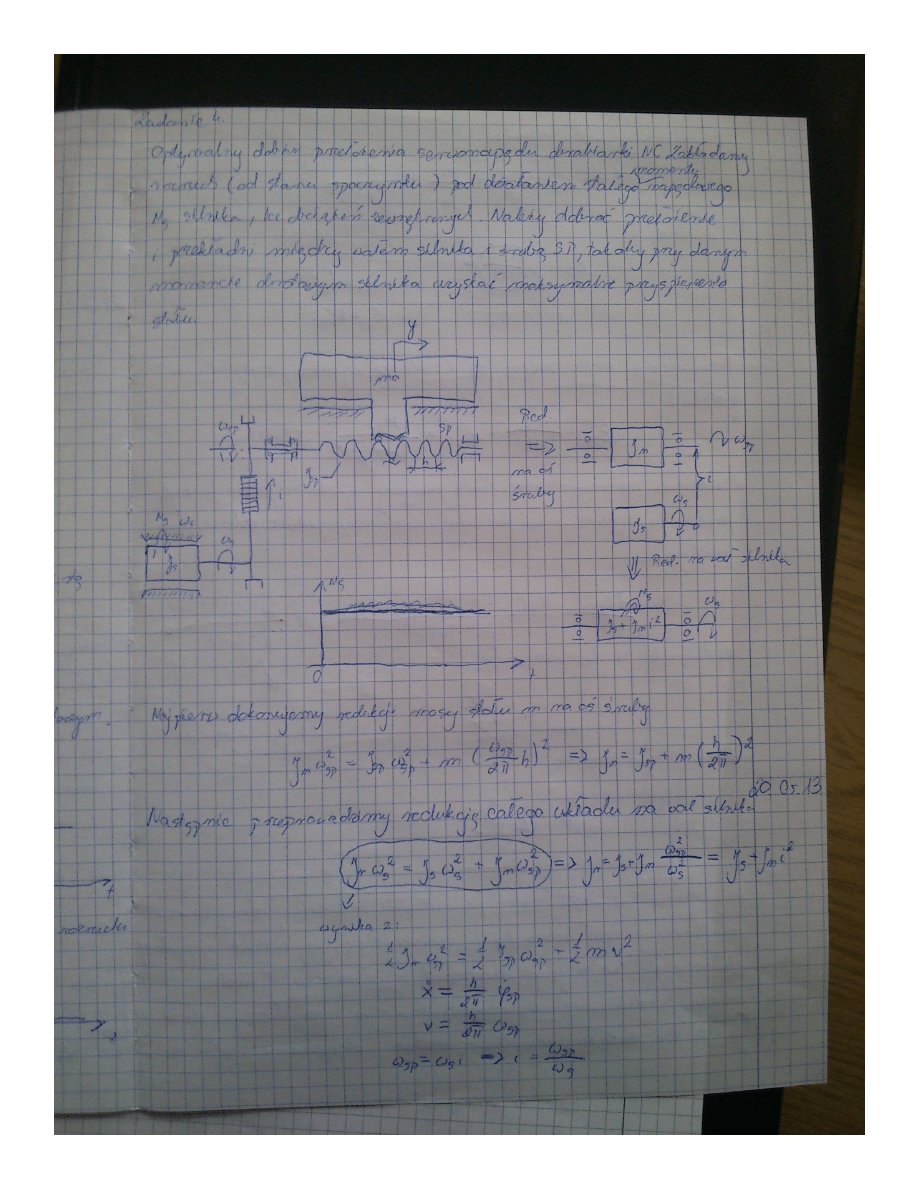 Zadanie 4.
Optymalny dobór przełożenia serwonapędu obrabiarki NC. Zakładamy
rozruch (od stanu spoczynku) pod działaniem stałego momentu napędowego
Ms silnika, bez obciążeń zewnętrznych. Należy dobrać przełożenie
i przekładni między wałem silnika i śrubą ŚP, tak aby przy danym
momencie obrotowym silnika uzyskać maksymalne przyspieszenie
stołu.
y
m
ωśp
Śp
h
i
Red
na oś
śruby
Jm
ωśp
i
Ms
Js
ωs
Js
ωs
Red. na wał silnika
Ms
Js + Jm i²
ωs
Ms
0
t
Najpierw dokonujemy redukcji masy stołu m na oś śruby
Jm ωśp² = Jśp ωśp² + m (ωśp/2π h)² => Jm = Jśp + m (h/2π)²
20.05.13
Następnie przeprowadzamy redukcję całego układu na wał silnika
Jn ωs² = Js ωs² + Jm ωśp² => Jn = Js + Jm ωśp²/ωs² = Js + Jm i²
wynika z:
½ Jm ωśp² = ½ Jśp ωśp² + ½ m v²
ẋ = h/2π φ̇śp
v = h/2π ωśp
ωśp = ωs i => i = ωśp/ωs
rozruchu
t